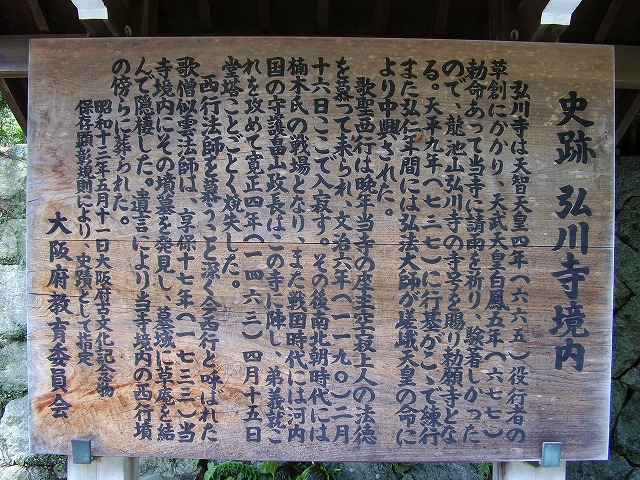 史跡 弘川寺境内
弘川寺は天智天皇四年(六六五)役行者の
草創にかかり、天武天皇白鳳五年(六七七)
勅命あって当寺に請雨を祈り、験著しかった
ので、龍池山弘川寺の寺号を賜り勅願寺とな
る。天平九年(七三七)に行基がここで練行
また弘仁年間には弘法大師が嵯峨天皇の命に
より中興された。
歌聖西行は晩年当寺の座主空寂上人の法徳
を慕って来られ、文治六年(一一九〇)二月
十六日ここで入寂す。その後南北朝時代には
楠木氏の戦場となり、また戦国時代には河内
国の守護畠山政長はこの寺に陣し、弟義就こ
れを攻めて寛正四年(一四六三)四月十五日
堂塔ことごとく焼失した。
西行法師を慕うこと深く今西行と呼ばれた
歌僧似雲法師は、享保十七年(一七三三)当
寺境内にその墳墓を発見し、墓域に草庵を結
んで隠棲した。遺言により当寺境内の西行墳
の傍らに葬られた。
昭和十三年五月十一日大阪府古文化記念物
保存顕彰規則により、史蹟として指定
大阪府教育委員会